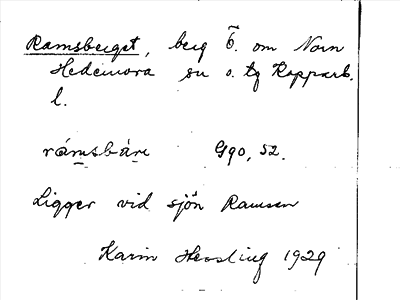 Ramsberget, berg ö. om Norn
Hedemora sn o. tg Kopparb.
l.
rámsbàre G90, 52.
Ligger vid sjön Ramsen
Karin Hessling 1929